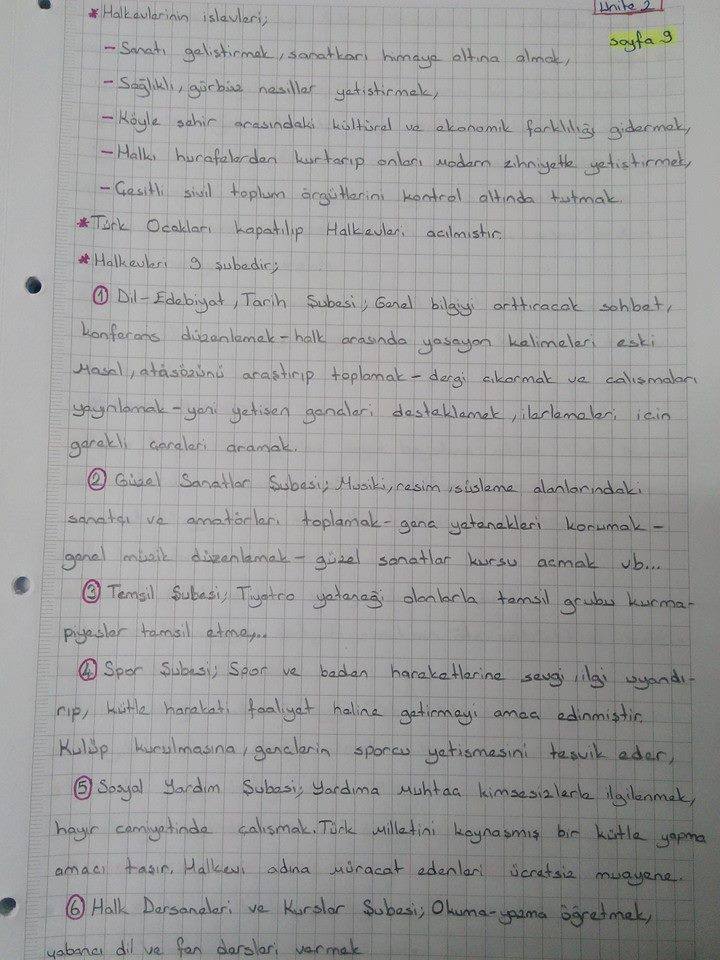 Ünite 2
sayfa 9
* Halkevlerinin islevleri;
- Sanatı gelistirmek, sanatkarı himaye altına almak,
- Sağlıklı, gürbüz nesiller yetistirmek,
- Köyle sehir arasındaki kültürel ve ekonomik farklılığı gidermek,
- Halkı hurafelerden kurtarıp onları modern zihniyetle yetistirmek,
- Cesitli sivil toplum örgütlerini kontrol altında tutmak.
* Türk Ocakları kapatılıp Halkevleri acılmıstır.
* Halkevleri 9 subedir;
① Dil-Edebiyat, Tarih Subesi; Genel bilgiyi arttıracak sohbet,
konferans düzenlemek - halk arasında yasayan kelimeleri eski
masal, atasözünü arastırıp toplamak - dergi cıkarmak ve calısmaları
yayınlamak - yeni yetisen gencleri desteklemek, ilerlemeleri icin
gerekli careleri aramak.
② Güzel Sanatlar Subesi; Musiki, resim, süsleme alanlarındaki
sanatçı ve amatörleri toplamak - genc yetenekleri korumak -
genel müzik düzenlemek - güzel sanatlar kursu acmak vb...
③ Temsil Subesi; Tiyatro yeteneği olanlarla temsil grubu kurma -
piyesler temsil etme,..
④ Spor Subesi; Spor ve beden hareketlerine sevgi, ilgi uyandı-
rıp, kütle harekati faaliyet haline getirmeyi amac edinmistir.
Kulüp kurulmasına, genclerin sporcu yetismesini tesvik eder,
⑤ Sosyal Yardım Subesi; Yardıma muhtac kimsesizlerle ilgilenmek,
hayır cemiyetinde calısmak. Türk milletini kaynasmış bir kütle yapma
amacı tasır. Halkevi adına müracat edenleri ücretsiz muayene.
⑥ Halk Dersaneleri ve Kurslar Subesi; Okuma-yazma öğretmek,
yabancı dil ve fen dersleri vermek